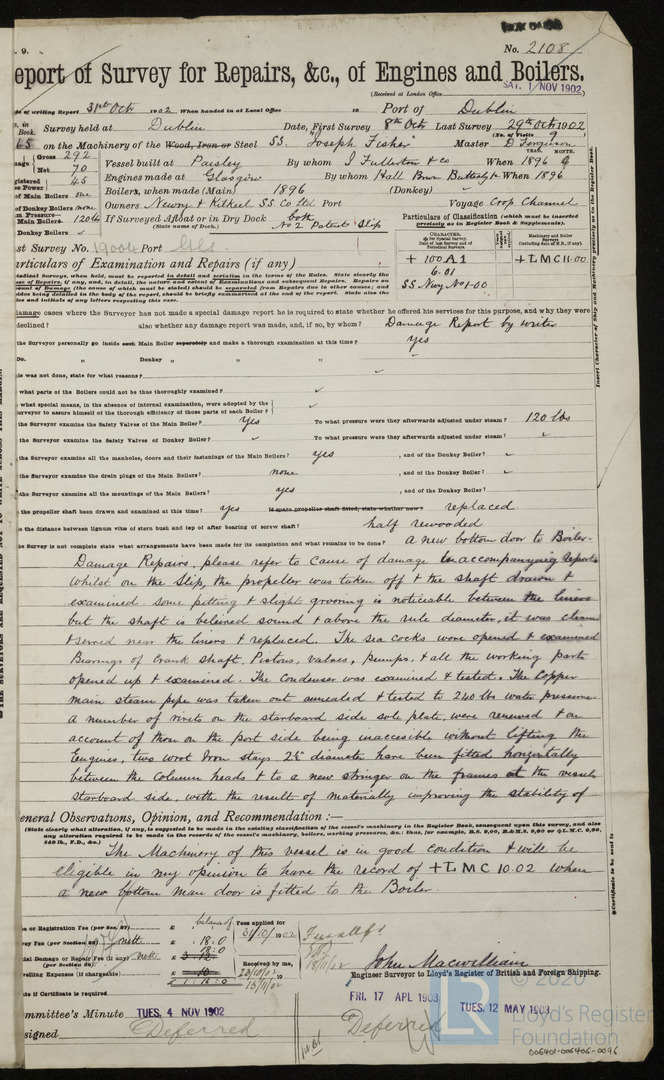 . 9.
No. 2108
eport of Survey for Repairs, &c., of Engines and Boilers.
(Received at London Office
SAT. 1 NOV 1902
e of writing Report 31st Oct 1902 When handed in at Local Office 10 Port of Dublin
o. in Book. Survey held at Dublin Date, First Survey 8th Oct Last Survey 29th Oct 1902
(No. of Visits 9
65 on the Machinery of the Wood, Iron or Steel SS. "Joseph Fisher" Master D Ferguson
YEAR. MONTH.
Gross 292
Net 70
Vessel built at Paisley By whom J Fullerton & Co When 1896
gistered 45
e Power
Engines made at Glasgow By whom Hall Brown Buttery & Co When 1896
of Main Boilers one
Boilers, when made (Main) 1896 (Donkey)
of Donkey Boilers none
Owners Newry & Kilkeel SS. Co Ltd Port Voyage Crop Channel
m Pressure—
Main Boilers 120 lb
Donkey Boilers
If Surveyed Afloat or in Dry Dock both
(State name of Dock.) No 2 Patent Slip
Particulars of Classification (which must be inserted
precisely as in Register Book & Supplements).
st Survey No. Port
CHARACTER.
Machinery and Boiler Surveys
+ 100 A 1
6.01
SS Nwy No 1-00
+ L M C 11.00
articulars of Examination and Repairs (if any)
Insert Character of Ship and Machinery precisely as in the Register Book.
amage cases where the Surveyor has not made a special damage report he is required to state whether he offered his services for this purpose, and why they were
declined? also whether any damage report was made, and, if so, by whom? Damage Report by writer
the Surveyor personally go inside each Main Boiler separately and make a thorough examination at this time? yes
Do. " Donkey " " "
is was not done, state for what reasons?
what parts of the Boilers could not be thoroughly examined?
what special means, in the absence of internal examination, were adopted by the
urveyor to assure himself of the thorough efficiency of those parts of each Boiler?
the Surveyor examine the Safety Valves of the Main Boiler? yes To what pressure were they afterwards adjusted under steam? 120 lbs
the Surveyor examine the Safety Valves of Donkey Boiler? To what pressure were they afterwards adjusted under steam?
the Surveyor examine all the manholes, doors and their fastenings of the Main Boilers? yes , and of the Donkey Boiler?
the Surveyor examine the drain plugs of the Main Boilers? none , and of the Donkey Boiler?
the Surveyor examine all the mountings of the Main Boilers? yes , and of the Donkey Boiler?
the propeller shaft been drawn and examined at this time? yes If spare propeller shaft fitted, state whether new? replaced
is the distance between lignum vitæ of stern bush and top of after bearing of screw shaft? half rewooded
he Survey is not complete state what arrangements have been made for its completion and what remains to be done? a new bottom door to Boiler.
Damage Repairs, please refer to Cause of damage in accompanying report.
Whilst on the Slip, the propeller was taken off & the shaft drawn &
examined. Some pitting & slight grooving is noticeable between the liners
but the shaft is beleived sound & above the rule diameter, it was cleaned
& served near the liners & replaced. The sea cocks were opened & examined
Bearings of Crank shaft, Pistons, valves, Pumps, & all the working parts
opened up & examined. The Condenser was examined & tested. The Copper
main steam pipe was taken out annealed & tested to 240 lbs water pressure.
a number of rivets on the starboard side sole plate, were renewed & on
account of those on the port side being inaccesible without lifting the
Engines, two wrot Iron stays 2½" diameter have been fitted horizontally
between the Column heads & to a new stringer on the frames at the vessels
Starboard side, with the result of materially improving the stability of
eneral Observations, Opinion, and Recommendation :—
(State clearly what alteration, if any, is suggested to be made in the existing classification of the vessel's machinery in the Register Book, consequent upon this survey, and also
any alteration required to be made in the records of the vessel's machinery, boilers, working pressures, &c.: thus, for example, B.S. 9,00, B.&M.S. 9,00 or L.M.C. 9,00,
140 lb., F.D., &c.)
The Machinery of this vessel is in good condition & will be
eligible in my opinion to have the record of + L M C 10.02 when
a new bottom man door is fitted to the Boiler.
Certificate to be sent to
e or Registration Fee (per Sec. 27) £ Fees applied for
31/10/1902
vey Fee (per Section 28) £ 18:0
ial Damage or Repair Fee (if any) £
(per Section 28.)
Received by me,
velling Expense (if chargeable) £
John Macwilliam
Engineer Surveyor to Lloyd's Register of British and Foreign Shipping.
te if Certificate is required
FRI. 17 APL 1903
TUES. 12 MAY 1903
ommittee's Minute TUES. 4 NOV 1902
signed Deferred
Deferred
© 2020
LR
Lloyd's Register
Foundation
006401-006406-0096